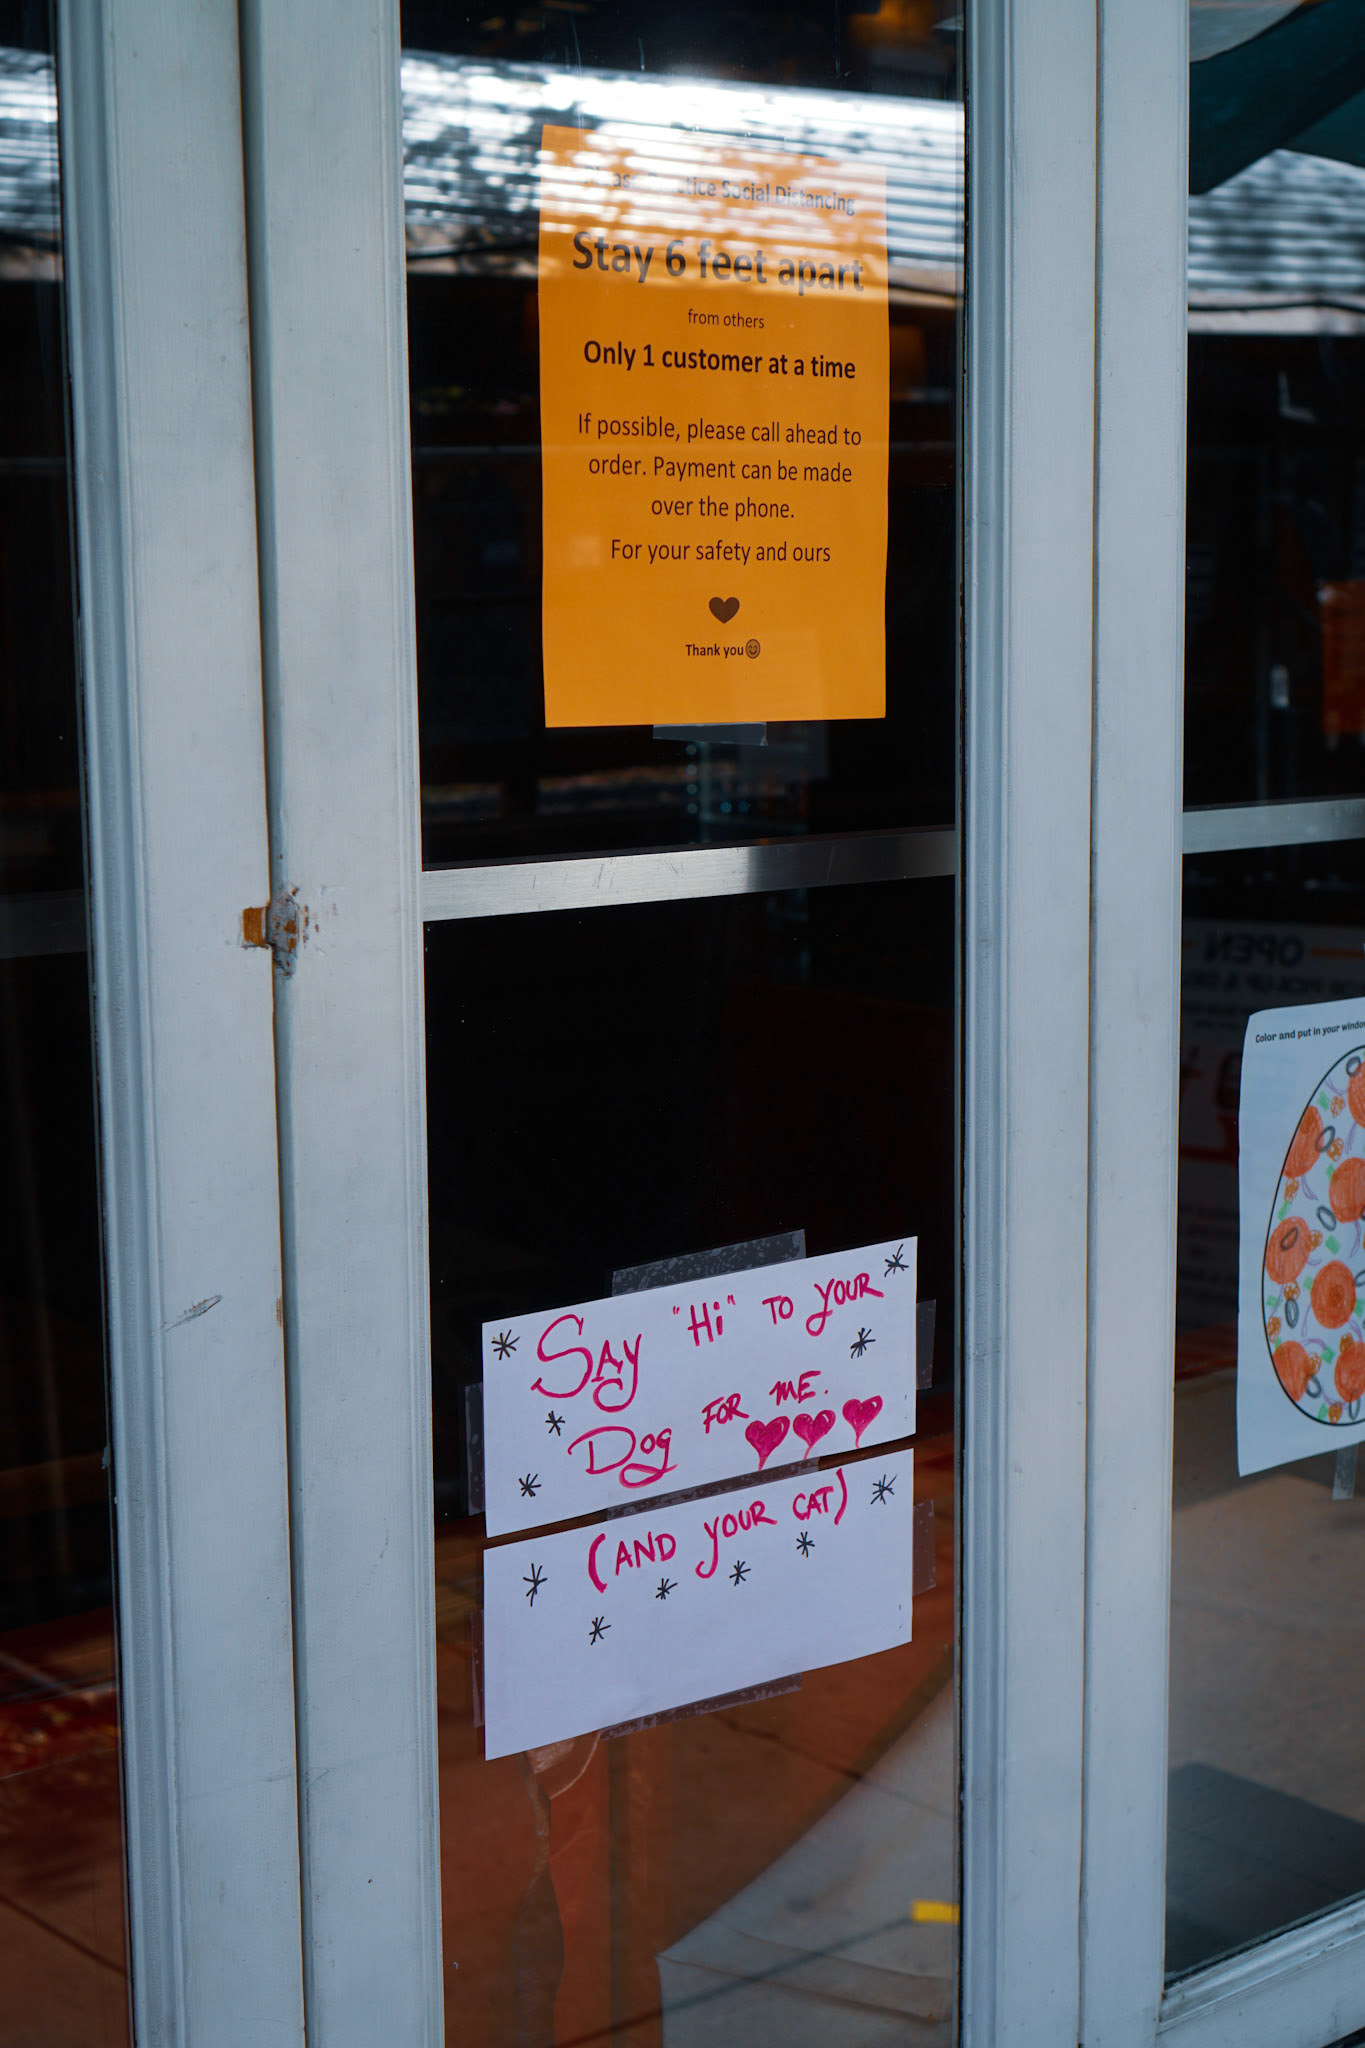 Please Practice Social Distancing
Stay 6 feet apart
from others
Only 1 customer at a time
If possible, please call ahead to
order. Payment can be made
over the phone.
For your safety and ours
Thank you
SAY "Hi" TO YOUR
DOg FOR ME.
(AND YOUR CAT)
OPEN
Color and put in your window